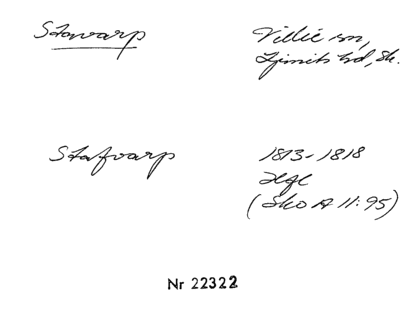 Stavarp
Villie sn,
Ljunits hd, Sk.
Stafvarp
1813-1818
Hfl
(Sko A 11:95)
Nr 22322